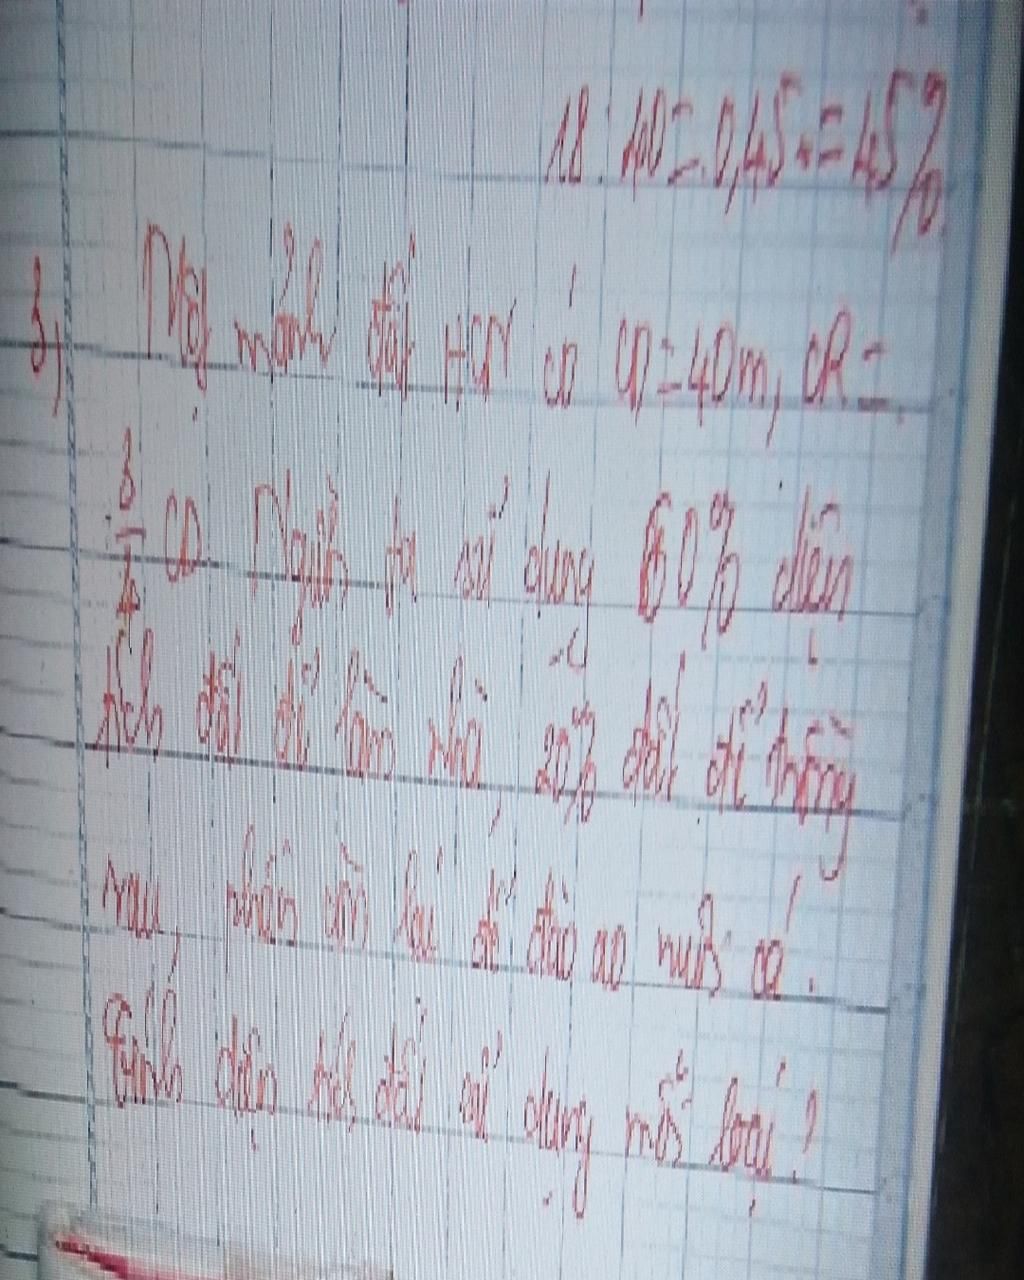 18 : 40 = 0,45 = 45%
3, Một mảnh đất HCN có CD = 40m, CR =
3/4 CD. Người ta sử dụng 60% diện
tích đất để làm nhà, 20% đất để trồng
rau, phần còn lại để đào ao nuôi cá.
Tính diện tích đất sử dụng mỗi loại?